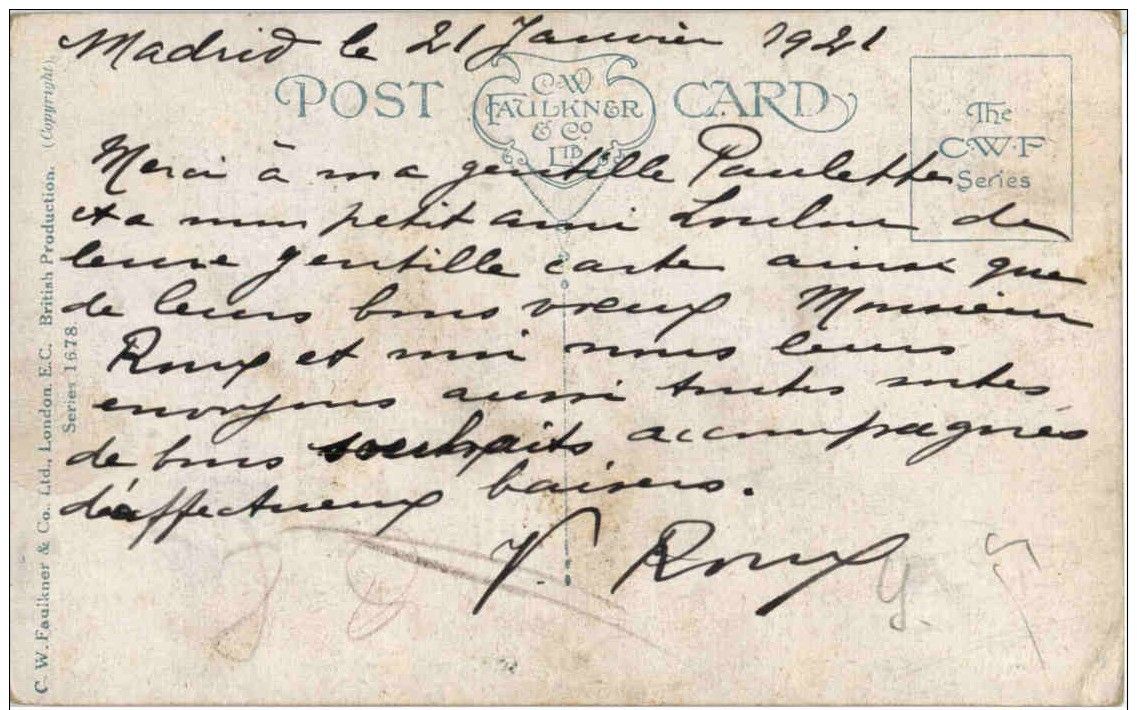 Madrid le 21 Janvier 1921
POST CARD
C.W.
FAULKNER
& Co.
LTD
The
C.W.F
Series
Merci à ma gentille Paulette
et a mon petit ami Loulou de
leure gentille carte ainsi que
de leurs bons vœux Monsieur
Roux et moi nous leurs
envoyons aussi toutes sortes
de bons souhaits accompagnés
d'affectueux baisers.
V. Roux
C. W. Faulkner & Co. Ltd., London. E.C. British Production. (Copyright).
Series 1678